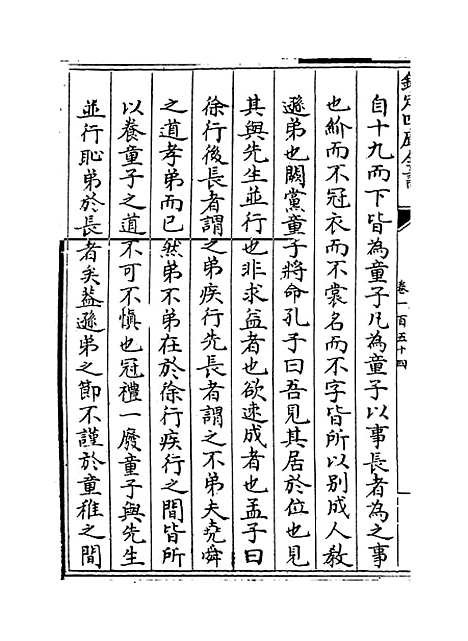 欽定四庫全書
卷一百五十四
自十九而下皆為童子凡為童子以事長者為之事
也紒而不冠衣而不裳名而不字皆所以別成人教
遜弟也闕黨童子將命孔子曰吾見其居於位也見
其與先生並行也非求益者也欲速成者也孟子曰
徐行後長者謂之弟疾行先長者謂之不弟夫堯舜
之道孝弟而已然弟不弟在於徐行疾行之間皆所
以養童子之道不可不慎也冠禮一廢童子與先生
並行恥弟於長者矣蓋遜弟之節不謹於童稚之間